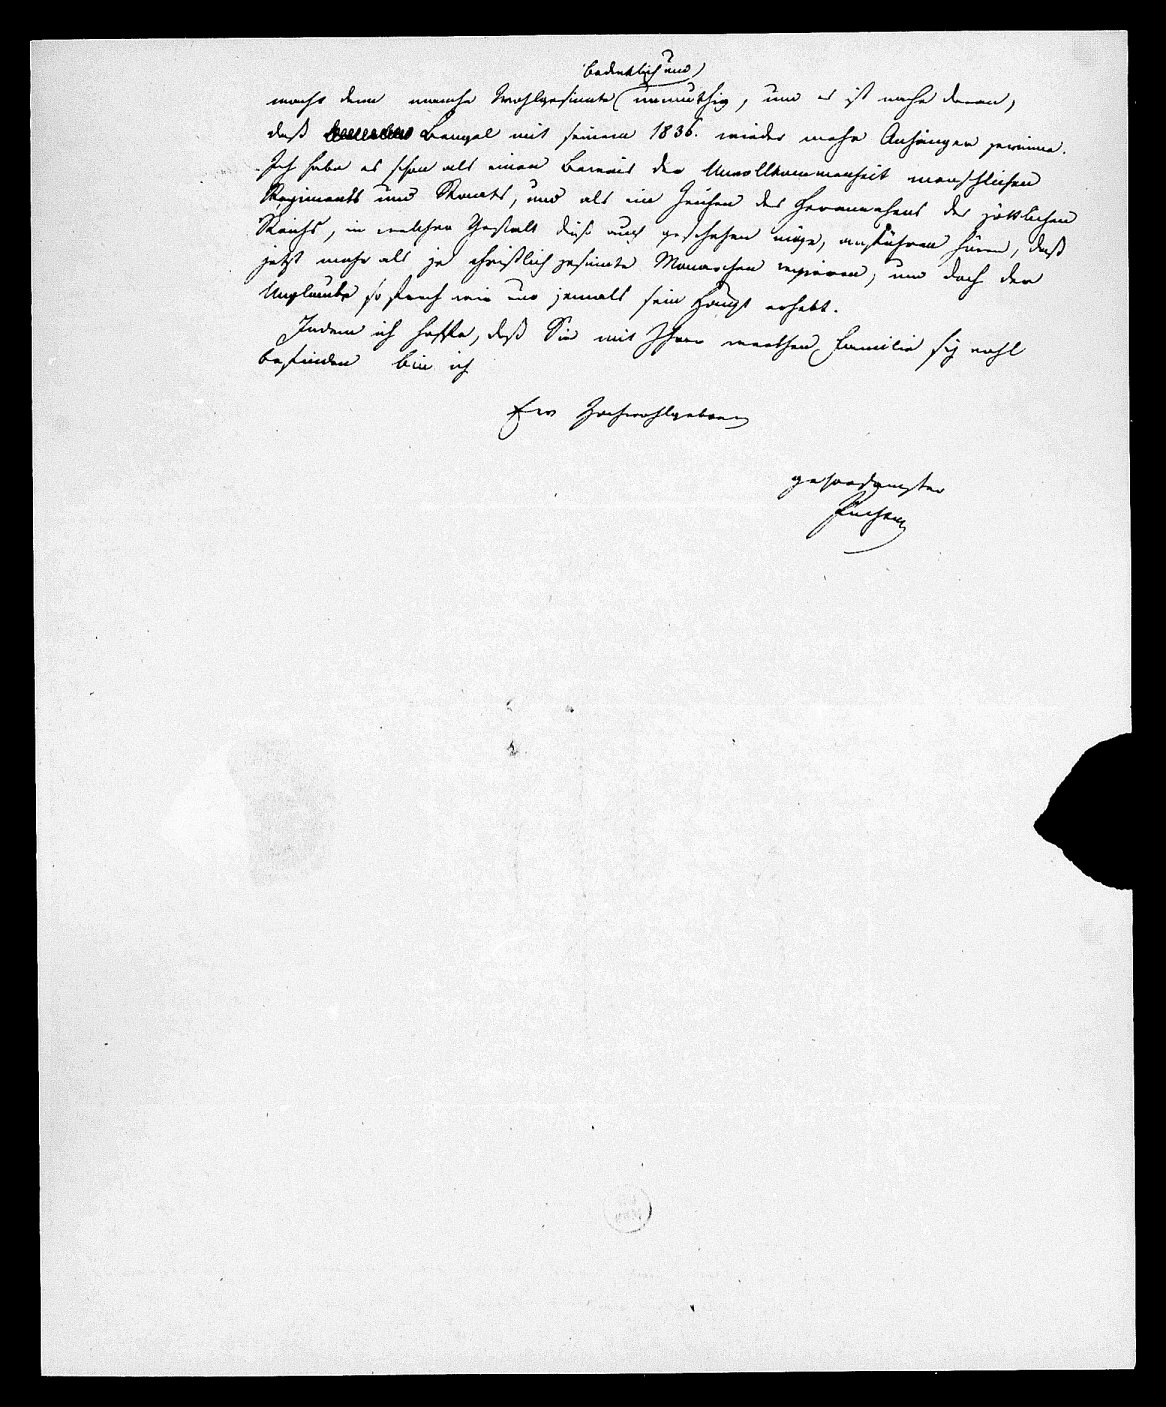 bedenklich und
macht denn manche Wohlgesinnte unmuthig, und es ist nahe daran,
daß Bengel mit seinem 1836. wieder mehr Anhänger gewinne.
Ich habe es schon als einen Beweis der Unvollkommenheit menschlichen
Regiments und Staats, und als ein Zeichen des Herannahens des göttlichen
Reichs, in welcher Gestalt dieß auch geschehen möge, anführen hören, daß
jetzt mehr als je christlich gesinnte Monarchen regieren, und doch der
Unglaube so stark wie nur jemals sein Haupt erhebt.
Indem ich hoffe, daß Sie mit Ihrer werthen Familie sich wohl
befinden bin ich
Ew Hochwohlgeboren
gehorsamster